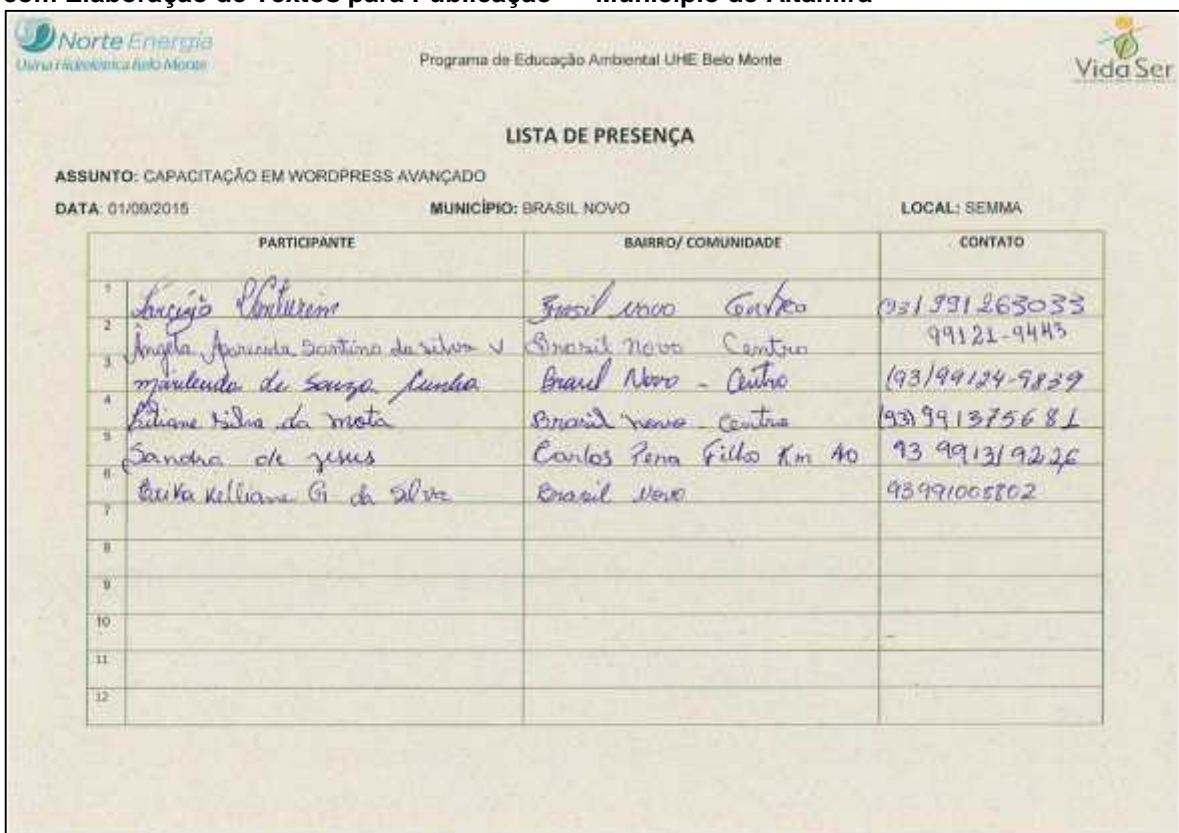 com Elaboração de Textos para Publicação – Município de Altamira
Norte Energia
Usina Hidrelétrica Belo Monte
Programa de Educação Ambiental UHE Belo Monte
Vida Ser
LISTA DE PRESENÇA
ASSUNTO: CAPACITAÇÃO EM WORDPRESS AVANÇADO
DATA: 01/09/2015 MUNICÍPIO: BRASIL NOVO LOCAL: SEMMA
PARTICIPANTE BAIRRO/ COMUNIDADE CONTATO
1 Brasil novo Centro (93) 991263033
2 Ângela Aparecida Santina da silva V Brasil novo Centro 99121-9443
3 marleuda de Souza Cunha Brasil Novo - Centro (93) 99124-9839
4 Liliane Silva da mota Brasil novo - Centro (93) 991375681
5 Sandra de jesus Carlos Pena Filho Km 40 93 991319226
6 Kelliane G da Silva Brasil Novo 93991005802
7
8
9
10
11
12